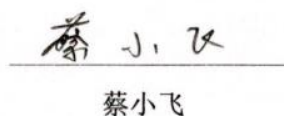 蔡小飞
蔡小飞